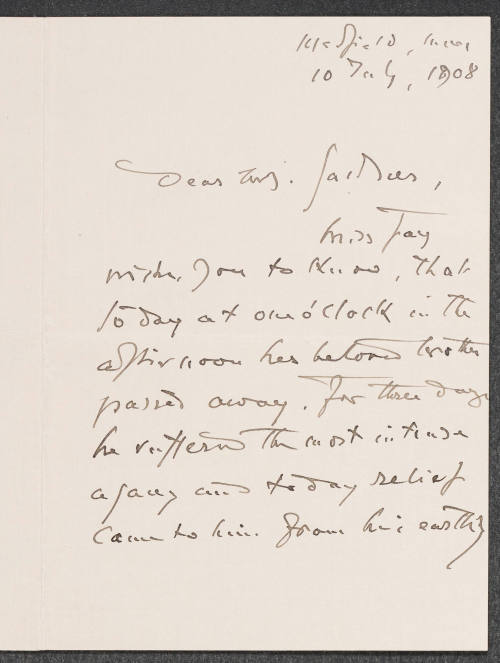 Medfield, Mass
10 July, 1908
Dear Mrs. Gardner,
Miss Fay
wishes you to know, that
to day at one o'clock in the
afternoon her beloved brother
passed away. For three days
he suffered the most intense
agony and today relief
came to him from his earthly